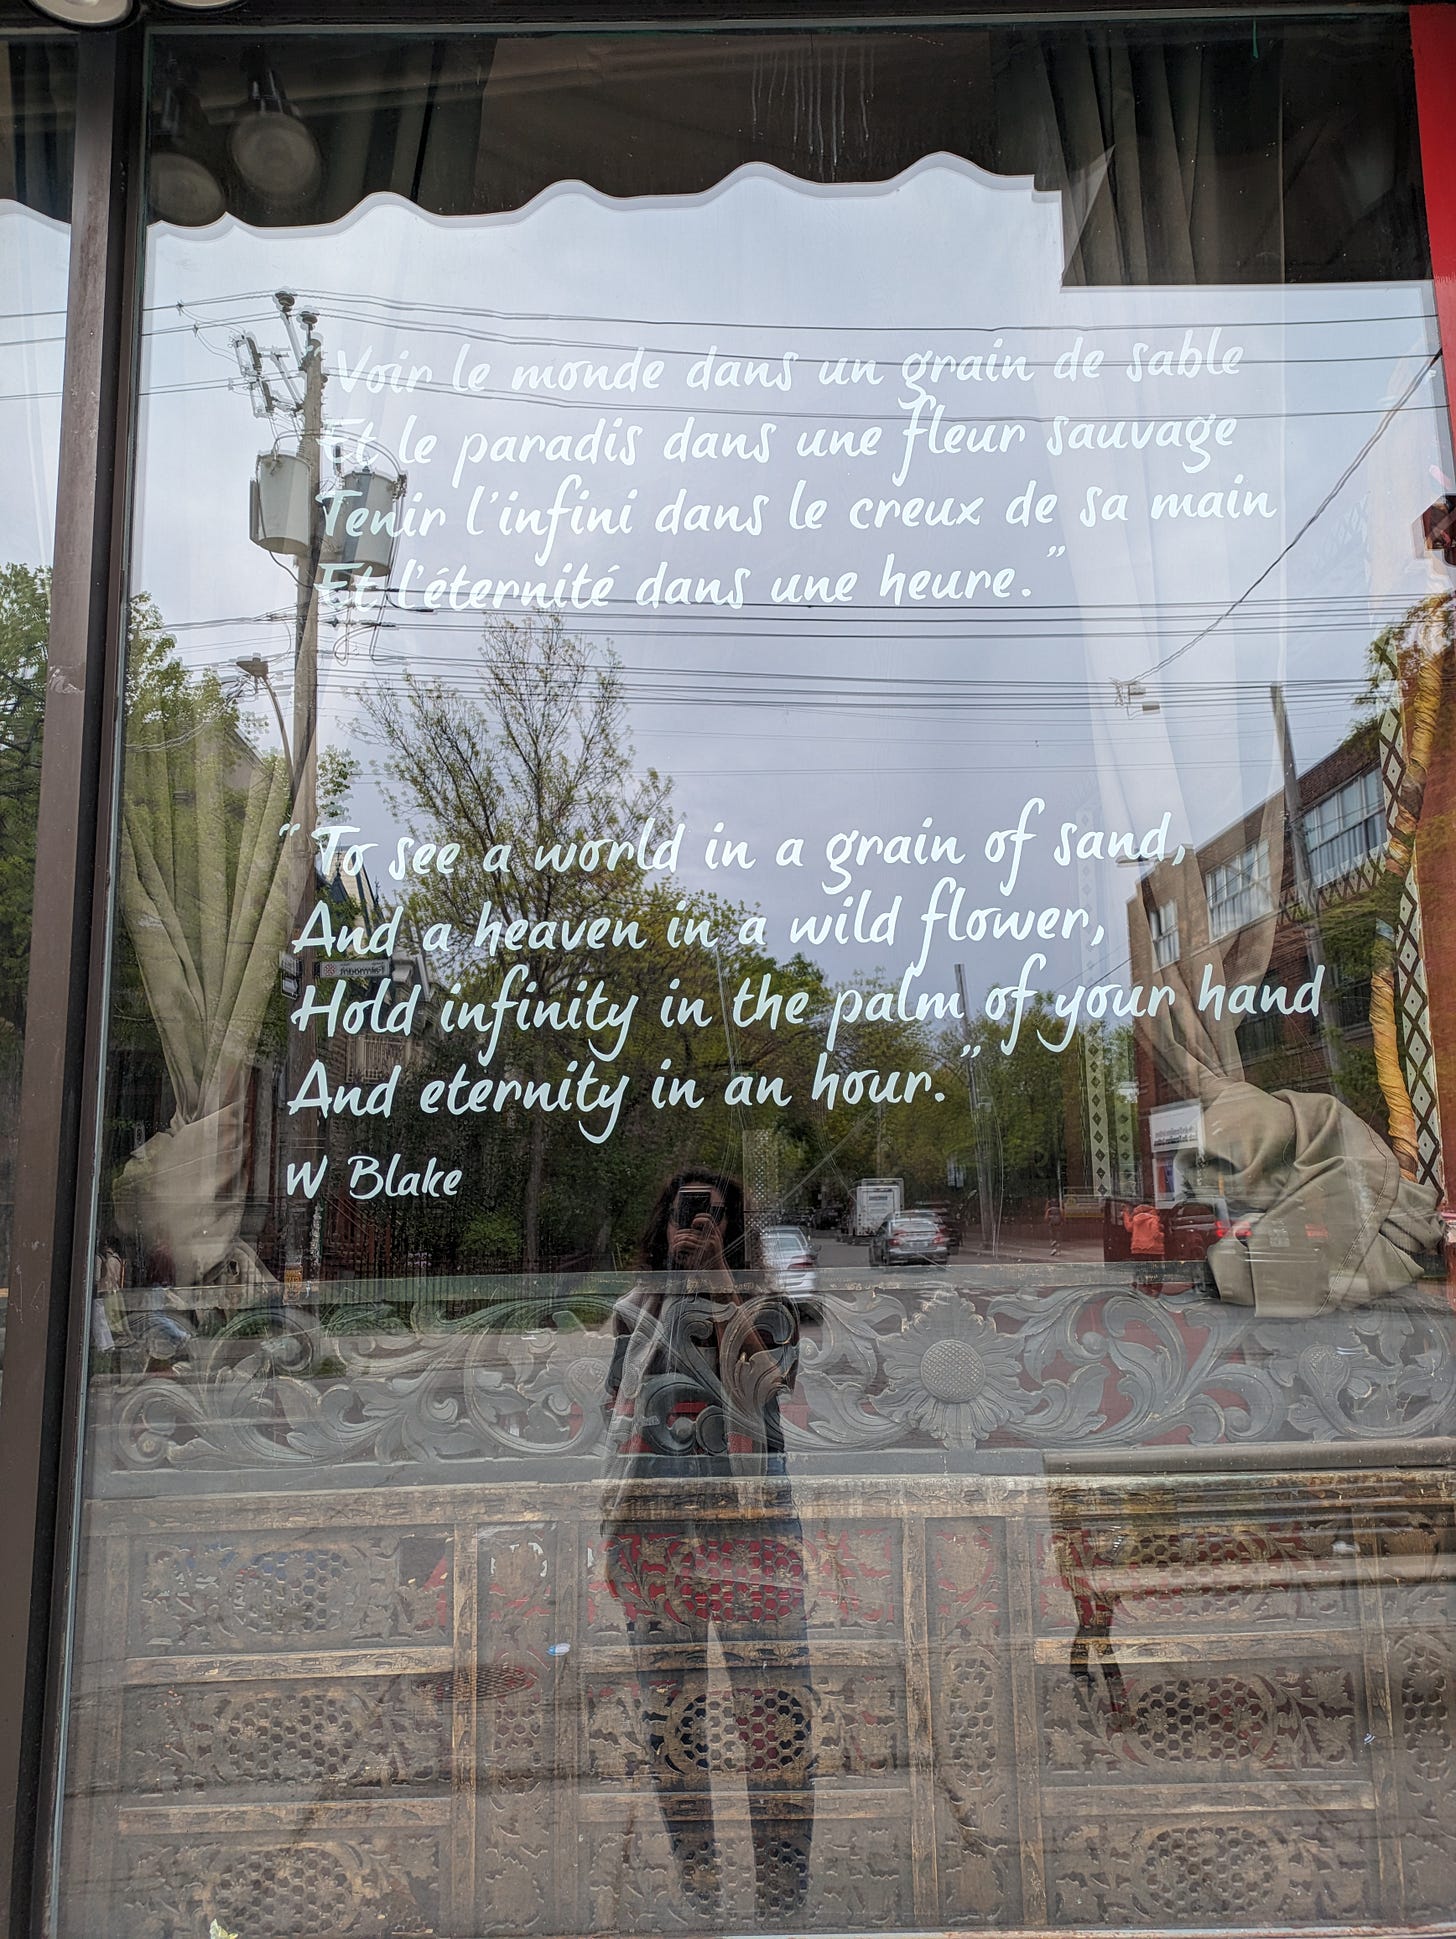 "Voir le monde dans un grain de sable
Et le paradis dans une fleur sauvage
Tenir l'infini dans le creux de sa main
Et l'éternité dans une heure."
"To see a world in a grain of sand,
And a heaven in a wild flower,
Hold infinity in the palm of your hand
And eternity in an hour."
W Blake